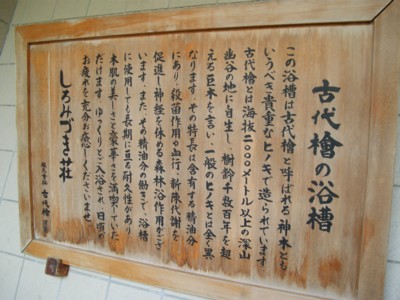 古代檜の浴槽
この浴槽は古代檜と呼ばれる神木とも
いうべき貴重なヒノキで造られています
古代檜とは海抜二〇〇〇メートル以上の深山
幽谷の地に自生し、樹齢千数百年を超
える巨木を言い、一般のヒノキとは全く異
なります。その特長は含有する精油分
にあり、殺菌作用や血行、新陳代謝を
促進し、神経を休める森林浴作用がござ
います。また、その精油分の働きで、浴槽
に使用しても長期に亘る耐久性があり
木肌の美しさと豪華さを満喫していた
だけます。ゆっくりとご入浴され、日頃の
お疲れを充分お癒しくださいませ。
しろみづき荘
株式会社 古代檜